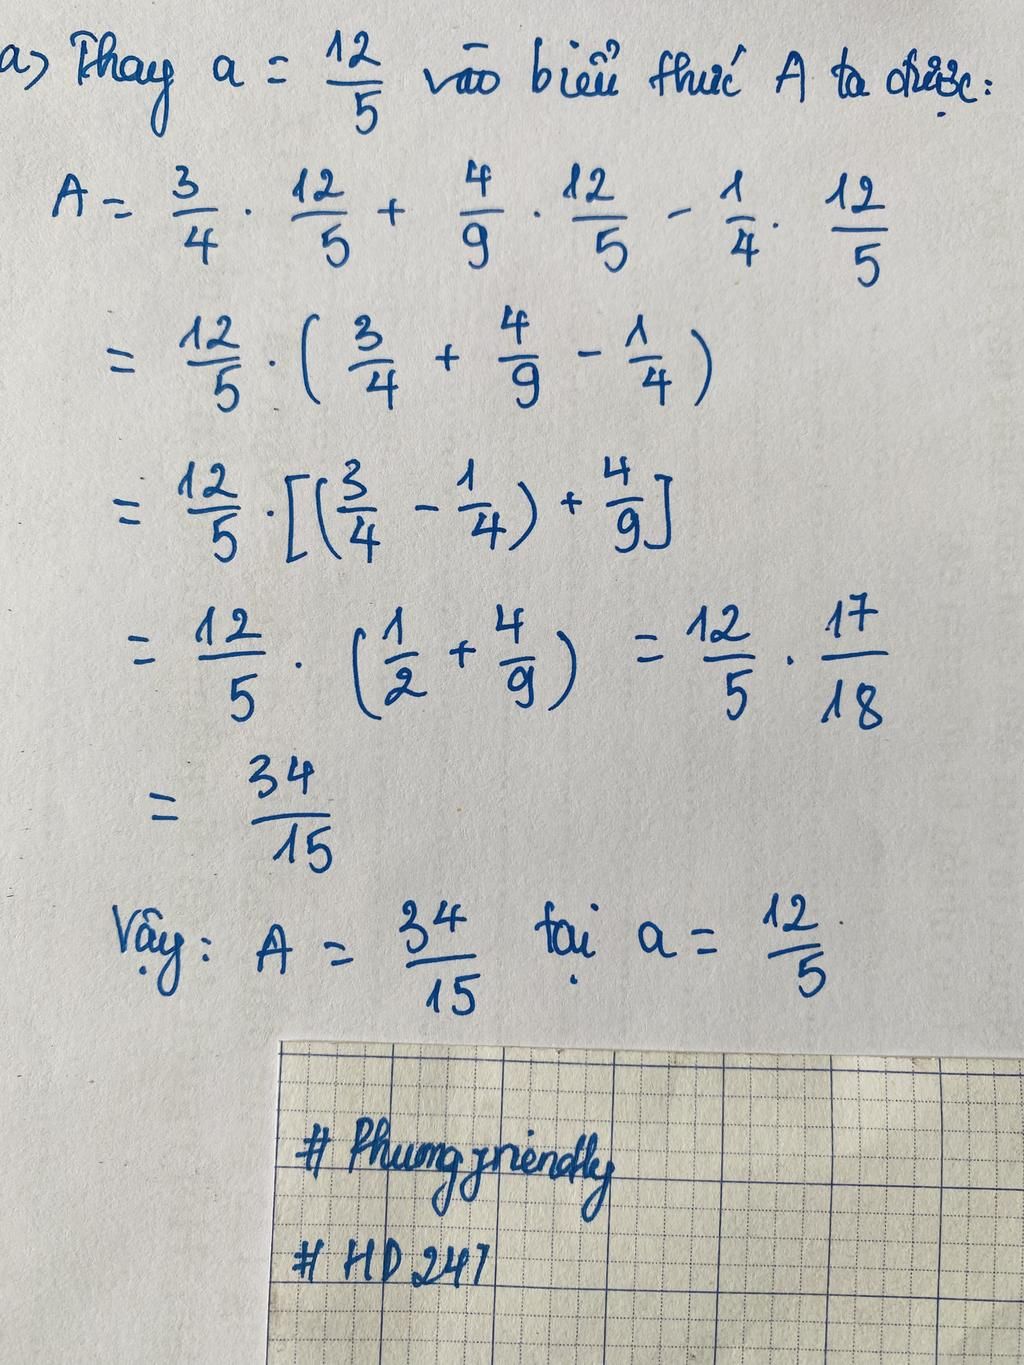 a) Thay a = 12/5 vào biểu thức A ta được:
A = 3/4 . 12/5 + 4/9 . 12/5 - 1/4 . 12/5
= 12/5 . ( 3/4 + 4/9 - 1/4 )
= 12/5 . [ ( 3/4 - 1/4 ) + 4/9 ]
= 12/5 . ( 1/2 + 4/9 ) = 12/5 . 17/18
= 34/15
Vậy: A = 34/15 tại a = 12/5.
# Phungfriendly
# HD247